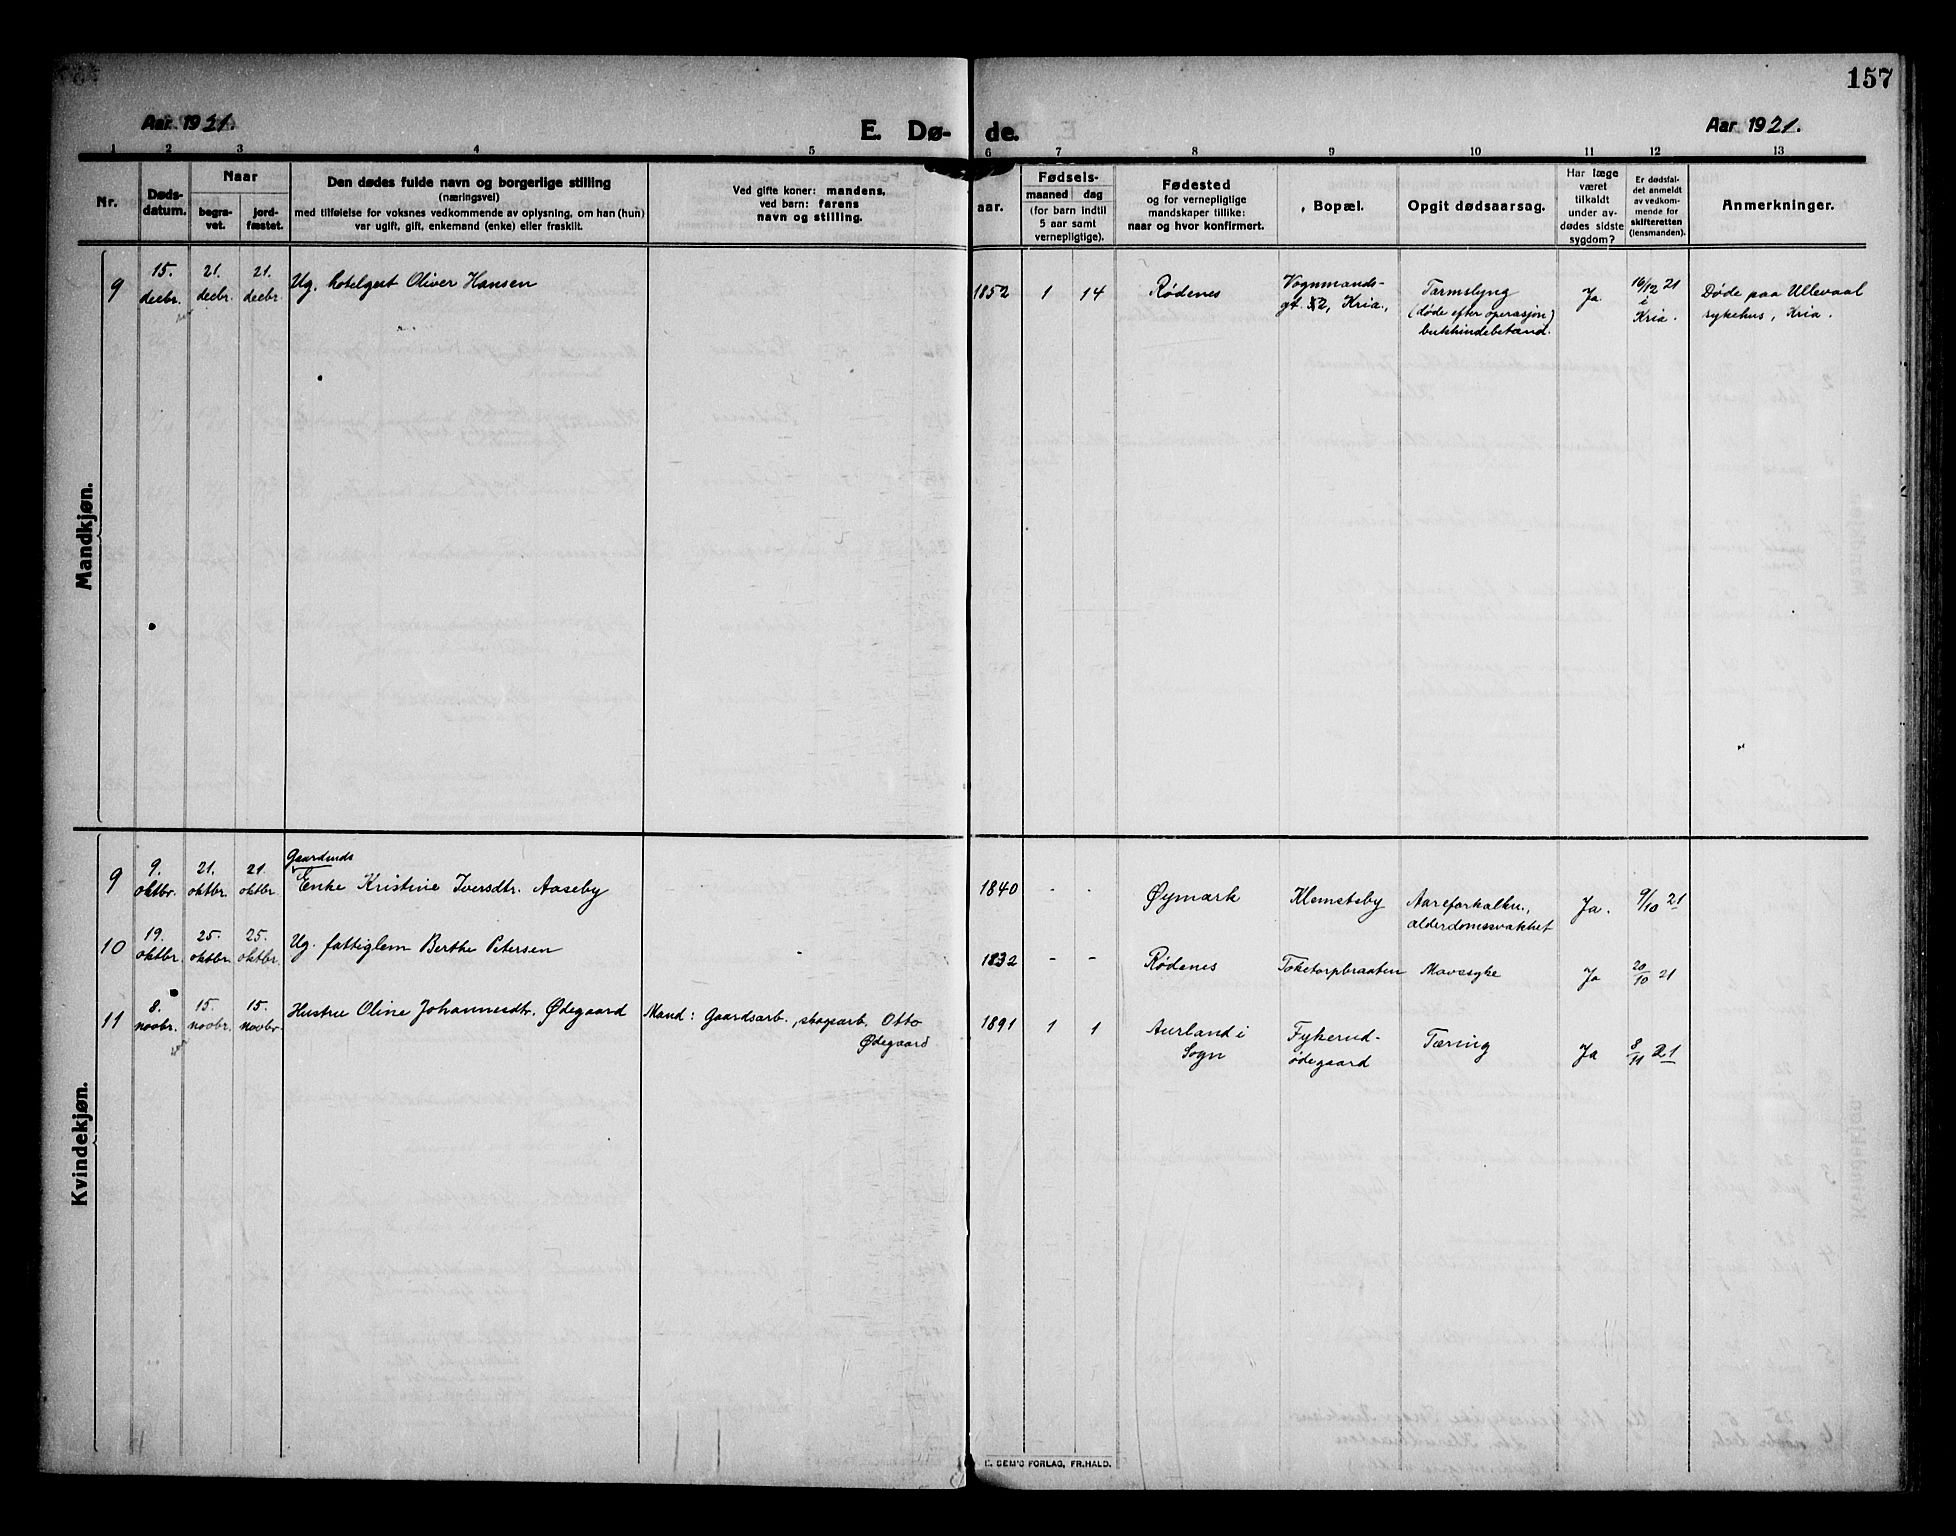 157
Aar 1921.
E. Dø-
de.
Aar 1921.
1 2 3 4 5 6 7 8 9 10 11 12 13
Nr.
Døds-
datum.
Naar
begra-
vet.
jord-
fæstet.
Den dødes fulde navn og borgerlige stilling
(næringsvei)
med tilføielse for voksnes vedkommende av oplysning, om han (hun)
var ugift, gift, enkemand (enke) eller fraskilt.
Ved gifte koner: mandens,
ved barn: farens
navn og stilling.
aar.
Fødsels-
maaned dag
(for barn indtil
5 aar samt
vernepligtige).
Fødested
og for vernepligtige
mandskaper tillike:
naar og hvor konfirmert.
Bopæl.
Opgit dødsaarsag.
Har læge
været
tilkaldt
under av-
dødes sidste
sygdom?
Er dødsfal-
det anmeldt
av vedkom-
mende for
skifteretten
(lensmanden).
Anmerkninger.
Mandkjøn.
9 15. decbr. 21. decbr. 21. decbr. Ug. hotelgest Oliver Hansen 1852 1 14 Rødenes
Vognmands-
gt. 2, Kria.,
Tarmslyng
(døde efter operasjon)
bukhindebetænd.
Ja
16/12 21
i
Kria.
Døde paa Ullevaal
sykehus, Kria.
Kvindekjøn.
9 9. oktbr. 21. oktbr. 21. oktbr.
Gaardmds
Enke Kristine Iversdtr. Aaseby 1840 - - Øymark Klemetsby
Aareforkalkn.,
alderdomssvakhet
Ja. 9/10 21
10 19. oktbr. 25. oktbr. 25. oktbr. Ug. fattiglem Berthe Petersen 1832 - - Rødenes Toketorpbraaten Mavesyke Ja 20/10 21
11 8. novbr. 15. novbr. 15. novbr. Hustru Oline Johannesdtr. Ødegaard
Mand: Gaardsarb., skogsarb. Otto
Ødegaard
1891 1 1
Aurland i
Sogn
Fykerud-
ødegaard
Tæring Ja 8/11 21
E. SEM'S FORLAG, FR.HALD.